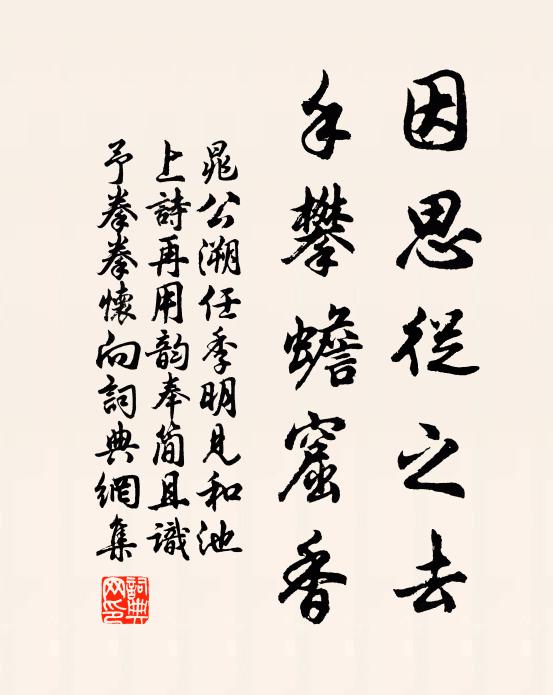 因思從之去
手攀蟾窟香
晁公溯任季明見和池
上詩再用韵奉簡且識
予拳拳懷向詞典網集
詞典
网印